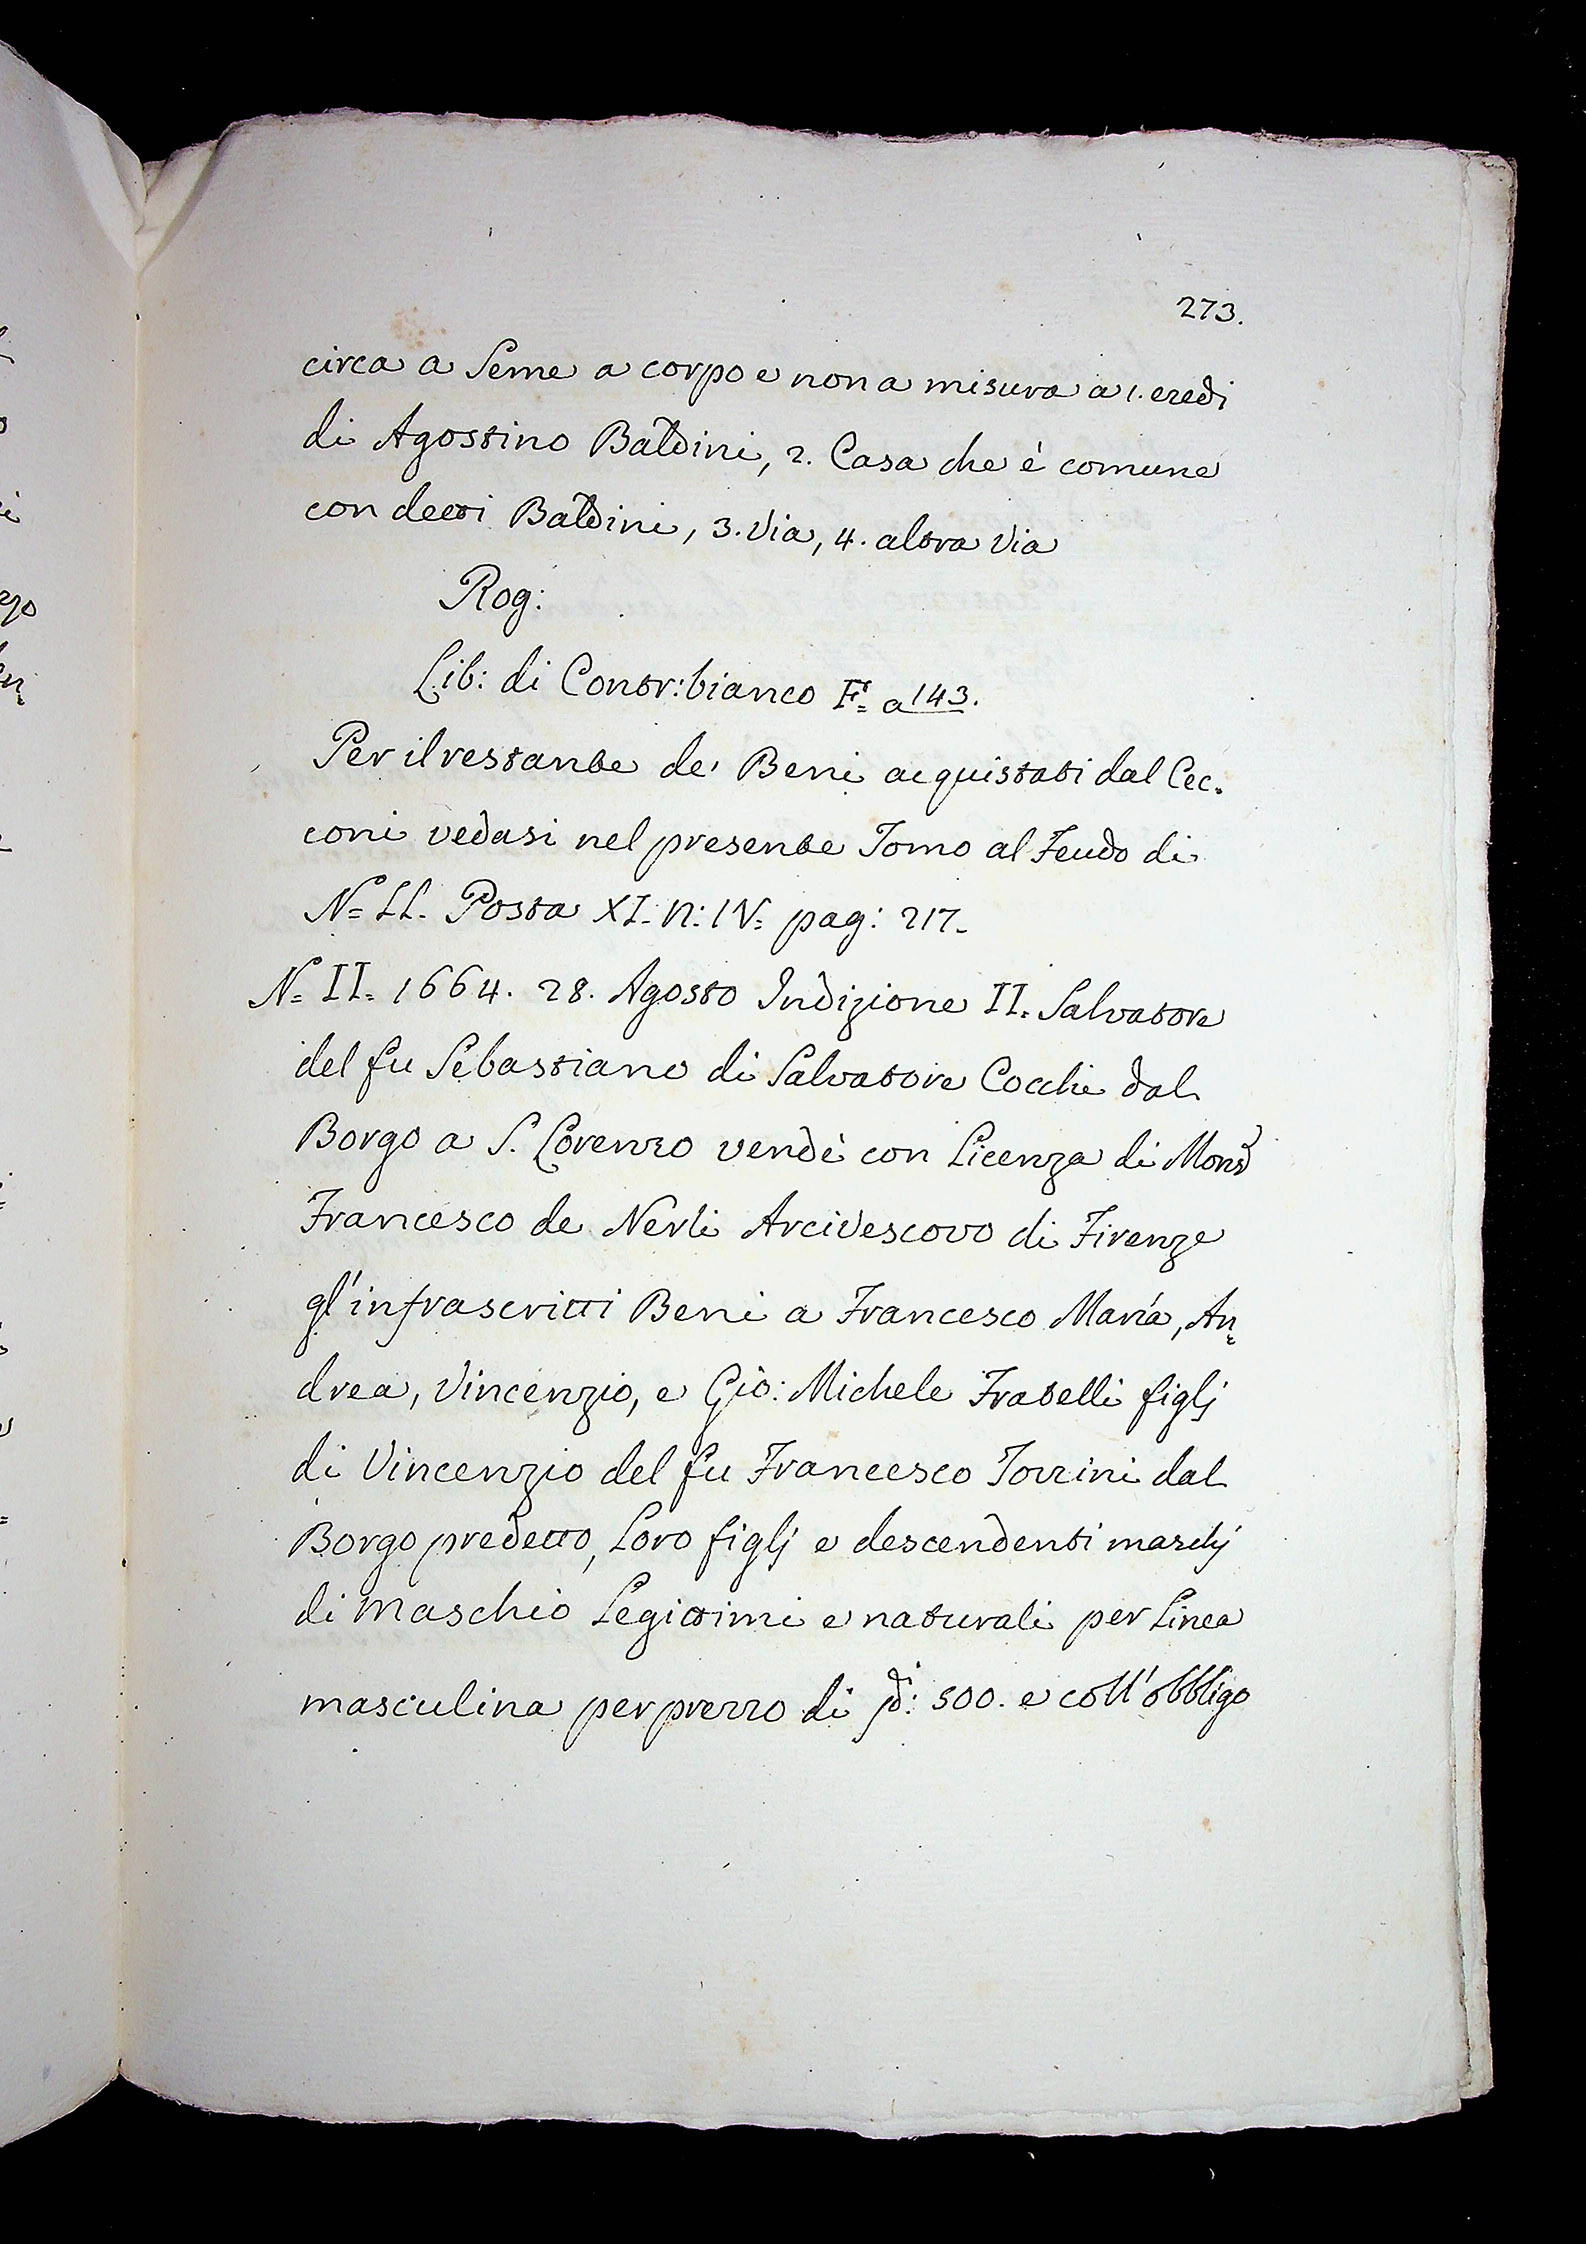 273.
circa a Seme a corpo e non a misura a 1. eredi
di Agostino Baldini, 2. Casa che è comune
con detti Baldini, 3. Via, 4. altra Via
Rog:
Lib: di Contr: bianco F. a 143.
Per il restante de' Beni acquistati dal Cec-
coni vedasi nel presente Tomo al Feudo di
N= LL. Posta XI. n: IV= pag: 217.
N= II= 1664. 28. Agosto Indizione II. Salvatore
del fu Sebastiano di Salvatore Cocchi dal
Borgo a S. Lorenzo vendè con Licenza di Mons
Francesco de Nerli Arcivescovo di Firenze
gl'infrascritti Beni a Francesco Maria, An=
drea, Vincenzio, e Gio: Michele Fratelli figlj
di Vincenzio del fu Francesco Torrini dal
Borgo predetto, Loro figlj e descendenti maschj
di maschio Legittimi e naturali per Linea
masculina per prezzo di 500. e coll'obbligo